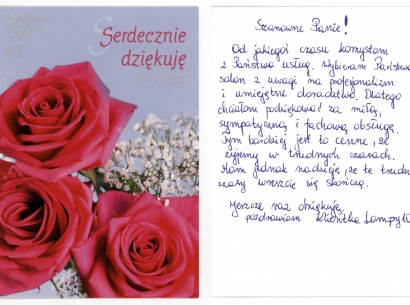 Serdecznie
dziękuję
Szanowne Panie!
Od jakiegoś czasu korzystam
z Państwa usług. Wybieram Państwa
salon z uwagi na profesjonalizm
i umiejętne doradztwo. Dlatego
chciałam podziękować za miłą,
sympatyczną i fachową obsługę.
Tym bardziej jest to cenne, że
żyjemy w trudnych czasach.
Mam jednak nadzieję, że te trudne
czasy wreszcie się skończą.
Jeszcze raz dziękuję
pozdrawiam Klientka